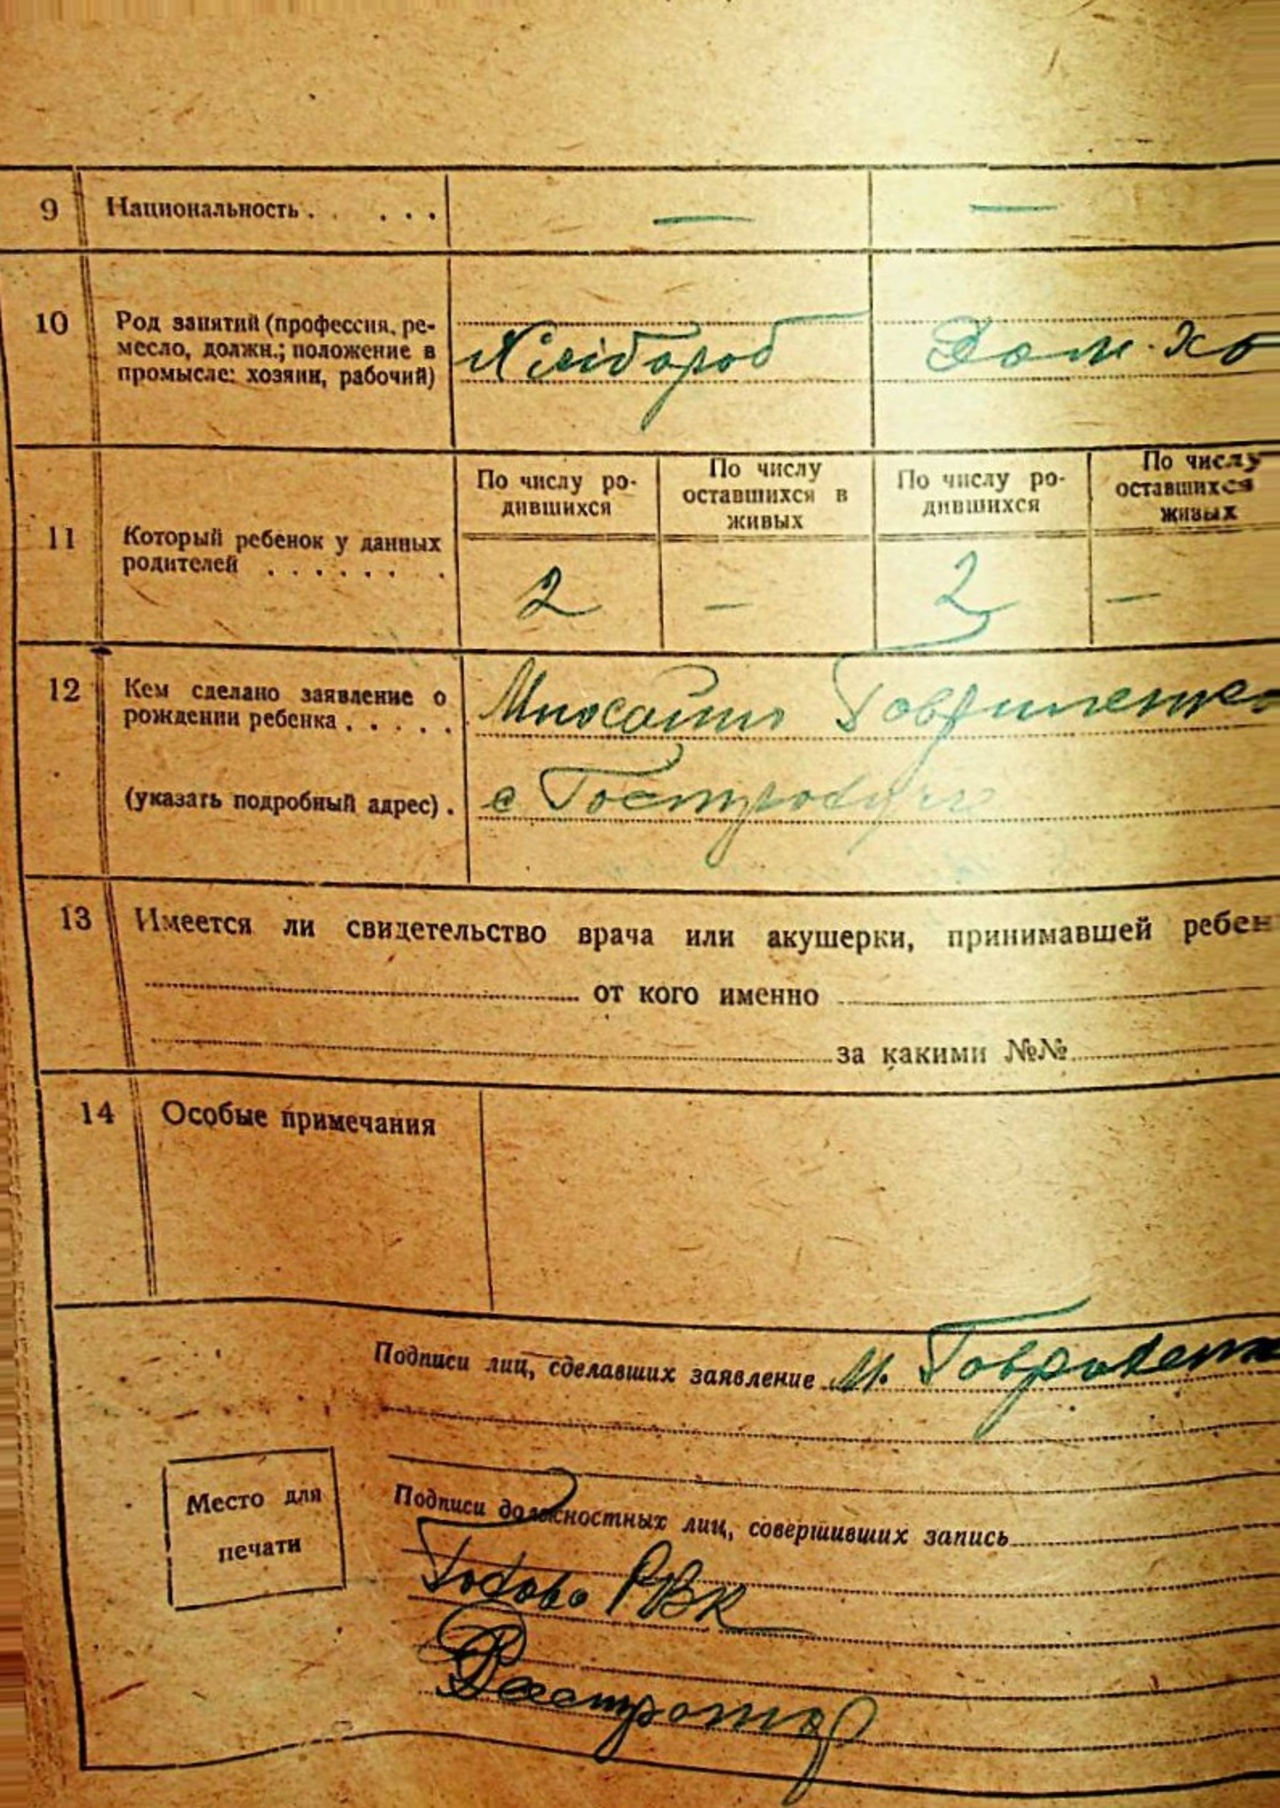 9 Национальность . . . . . — —
10 Род занятий (профессия, ре-
месло, должн.; положение в
промысле: хозяин, рабочий)
Хлібороб Дом. хо
По числу ро-
дившихся
По числу
оставшихся в
живых
По числу ро-
дившихся
По числу
оставшихся
живых
11 Который ребенок у данных
родителей . . . . . . .
2 — 2 —
12 Кем сделано заявление о
рождении ребенка . . . . .
Гавриленко
(указать подробный адрес) .
с
13 Имеется ли свидетельство врача или акушерки, принимавшей ребен
от кого именно
за какими №№
14 Особые примечания
Подписи лиц, сделавших заявление М.
Место для
печати
Подписи должностных лиц, совершивших запись
РВК